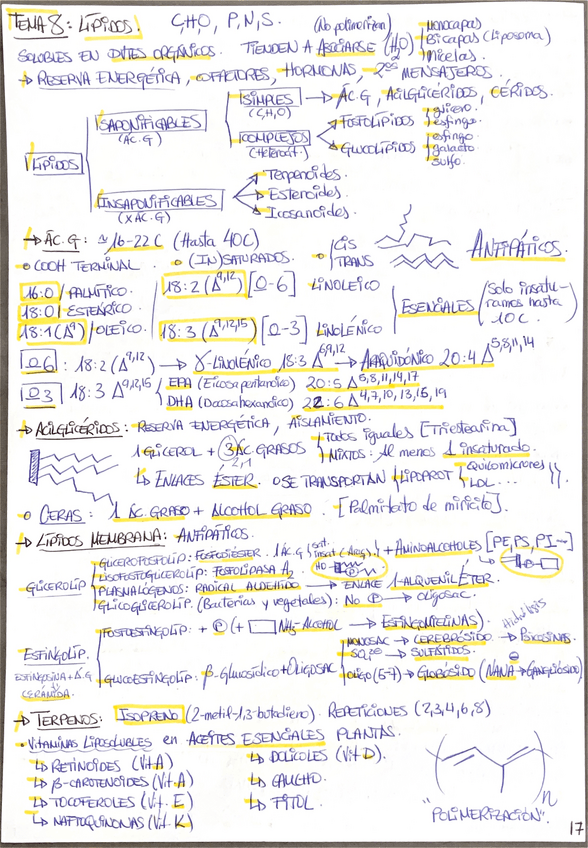 TEMA 8: LÍPIDOS. C,H,O, P,N,S. (No polimerizan)
SOLUBLES EN DVTES ORGÁNICOS. TIENDEN A ASOCIARSE (H2O) Monocapas Bicapas (Liposoma) Micelas.
→ RESERVA ENERGÉTICA, COFACTORES, HORMONAS, 2os MENSAJEROS.
LÍPIDOS
SAPONIFICABLES (AC.G)
SIMPLES (C,H,O) → ÁC.G, ACILGLICÉRIDOS, CÉRIDOS.
COMPLEJOS (Heteroát.)
FOSFOLÍPIDOS glicero. esfingo.
GLUCOLÍPIDOS esfingo galacto sulfo.
INSAPONIFICABLES (X AC.G)
Terpenoides.
Esteroides.
Icosanoides.
→ ÁC.G: ≃ 16-22 C (Hasta 40C)
• COOH TERMINAL. • (IN)SATURADOS. • CIS TRANS ANTIPÁTICOS.
16:0 / PALMÍTICO. 18:2 (Δ9,12) [Ω-6] LINOLEICO
18:0 / ESTEÁRICO
18:1 (Δ9) / OLEICO. 18:3 (Δ9,12,15) [Ω-3] LINOLÉNICO
ESENCIALES (Solo insaturamos hasta 10C.
Ω6: 18:2 (Δ9,12) → γ-LINOLÉNICO 18:3 Δ6,9,12 → ARAQUIDÓNICO 20:4 Δ5,8,11,14
Ω3 18:3 Δ9,12,15 EPA (Eicosapentanoico) 20:5 Δ5,8,11,14,17
DHA (Docosahexanoico) 22:6 Δ4,7,10,13,16,19
→ ACILGLICÉRIDOS: RESERVA ENERGÉTICA, AISLAMIENTO.
1 GLICEROL + 3 ÁC GRASOS Todos iguales [Triestearina]
2,1 MIXTOS: Al menos 1 insaturado.
↳ ENLACES ÉSTER. • SE TRANSPORTAN LIPOPROT Quilomicrones LDL...
• CERAS: 1 ÁC. GRASO + ALCOHOL GRASO. [Palmitato de miricilo].
→ LÍPIDOS MEMBRANA: ANTIPÁTICOS.
GLICEROLIP
GLICEROFOSFOLIP: FOSFODIÉSTER. 1 ÁC.G sat. insat (Araq.) + AMINOALCOHOLES [PE, PS, PI~]
LISOFOSFOGLICEROLIP: FOSFOLIPASA A2.
PLASMALÓGENOS: RADICAL ALDEHIDO → ENLACE 1-ALQUENILÉTER.
GLICOGLICEROLIP. (Bacterias y vegetales): NO P → OLIGOSAC.
ESFINGOLIP.
ESFINGOSINA + ÁC.G
CERAMIDA.
FOSFOESFINGOLIP: + P (+ NH2-ALCOHOL → ESFINGOMIELINAS).
GLUCOESFINGOLIP: β-Glucosídico + OLIGOSAC
MONOSAC → CEREBRÓSIDO → PSICOSINAS.
Hidrólisis
→ SULFÁTIDOS.
OLIGO (5-7) → GLOBÓSIDO (NANA → GANGLIÓSIDO)
→ TERPENOS: ISOPRENO (2-metil-1,3-butadieno). REPETICIONES (2,3,4,6,8)
• VITAMINAS LIPOSOLUBLES en ACEITES ESENCIALES PLANTAS.
↳ RETINOIDES (Vit A) ↳ DOLICOLES (Vit D).
↳ β-CAROTENOIDES (Vit. A) ↳ CAUCHO.
↳ TOCOFEROLES (Vit. E) ↳ FITOL.
↳ NAFTOQUINONAS (Vit. K)
n
"POLIMERIZACIÓN".
17